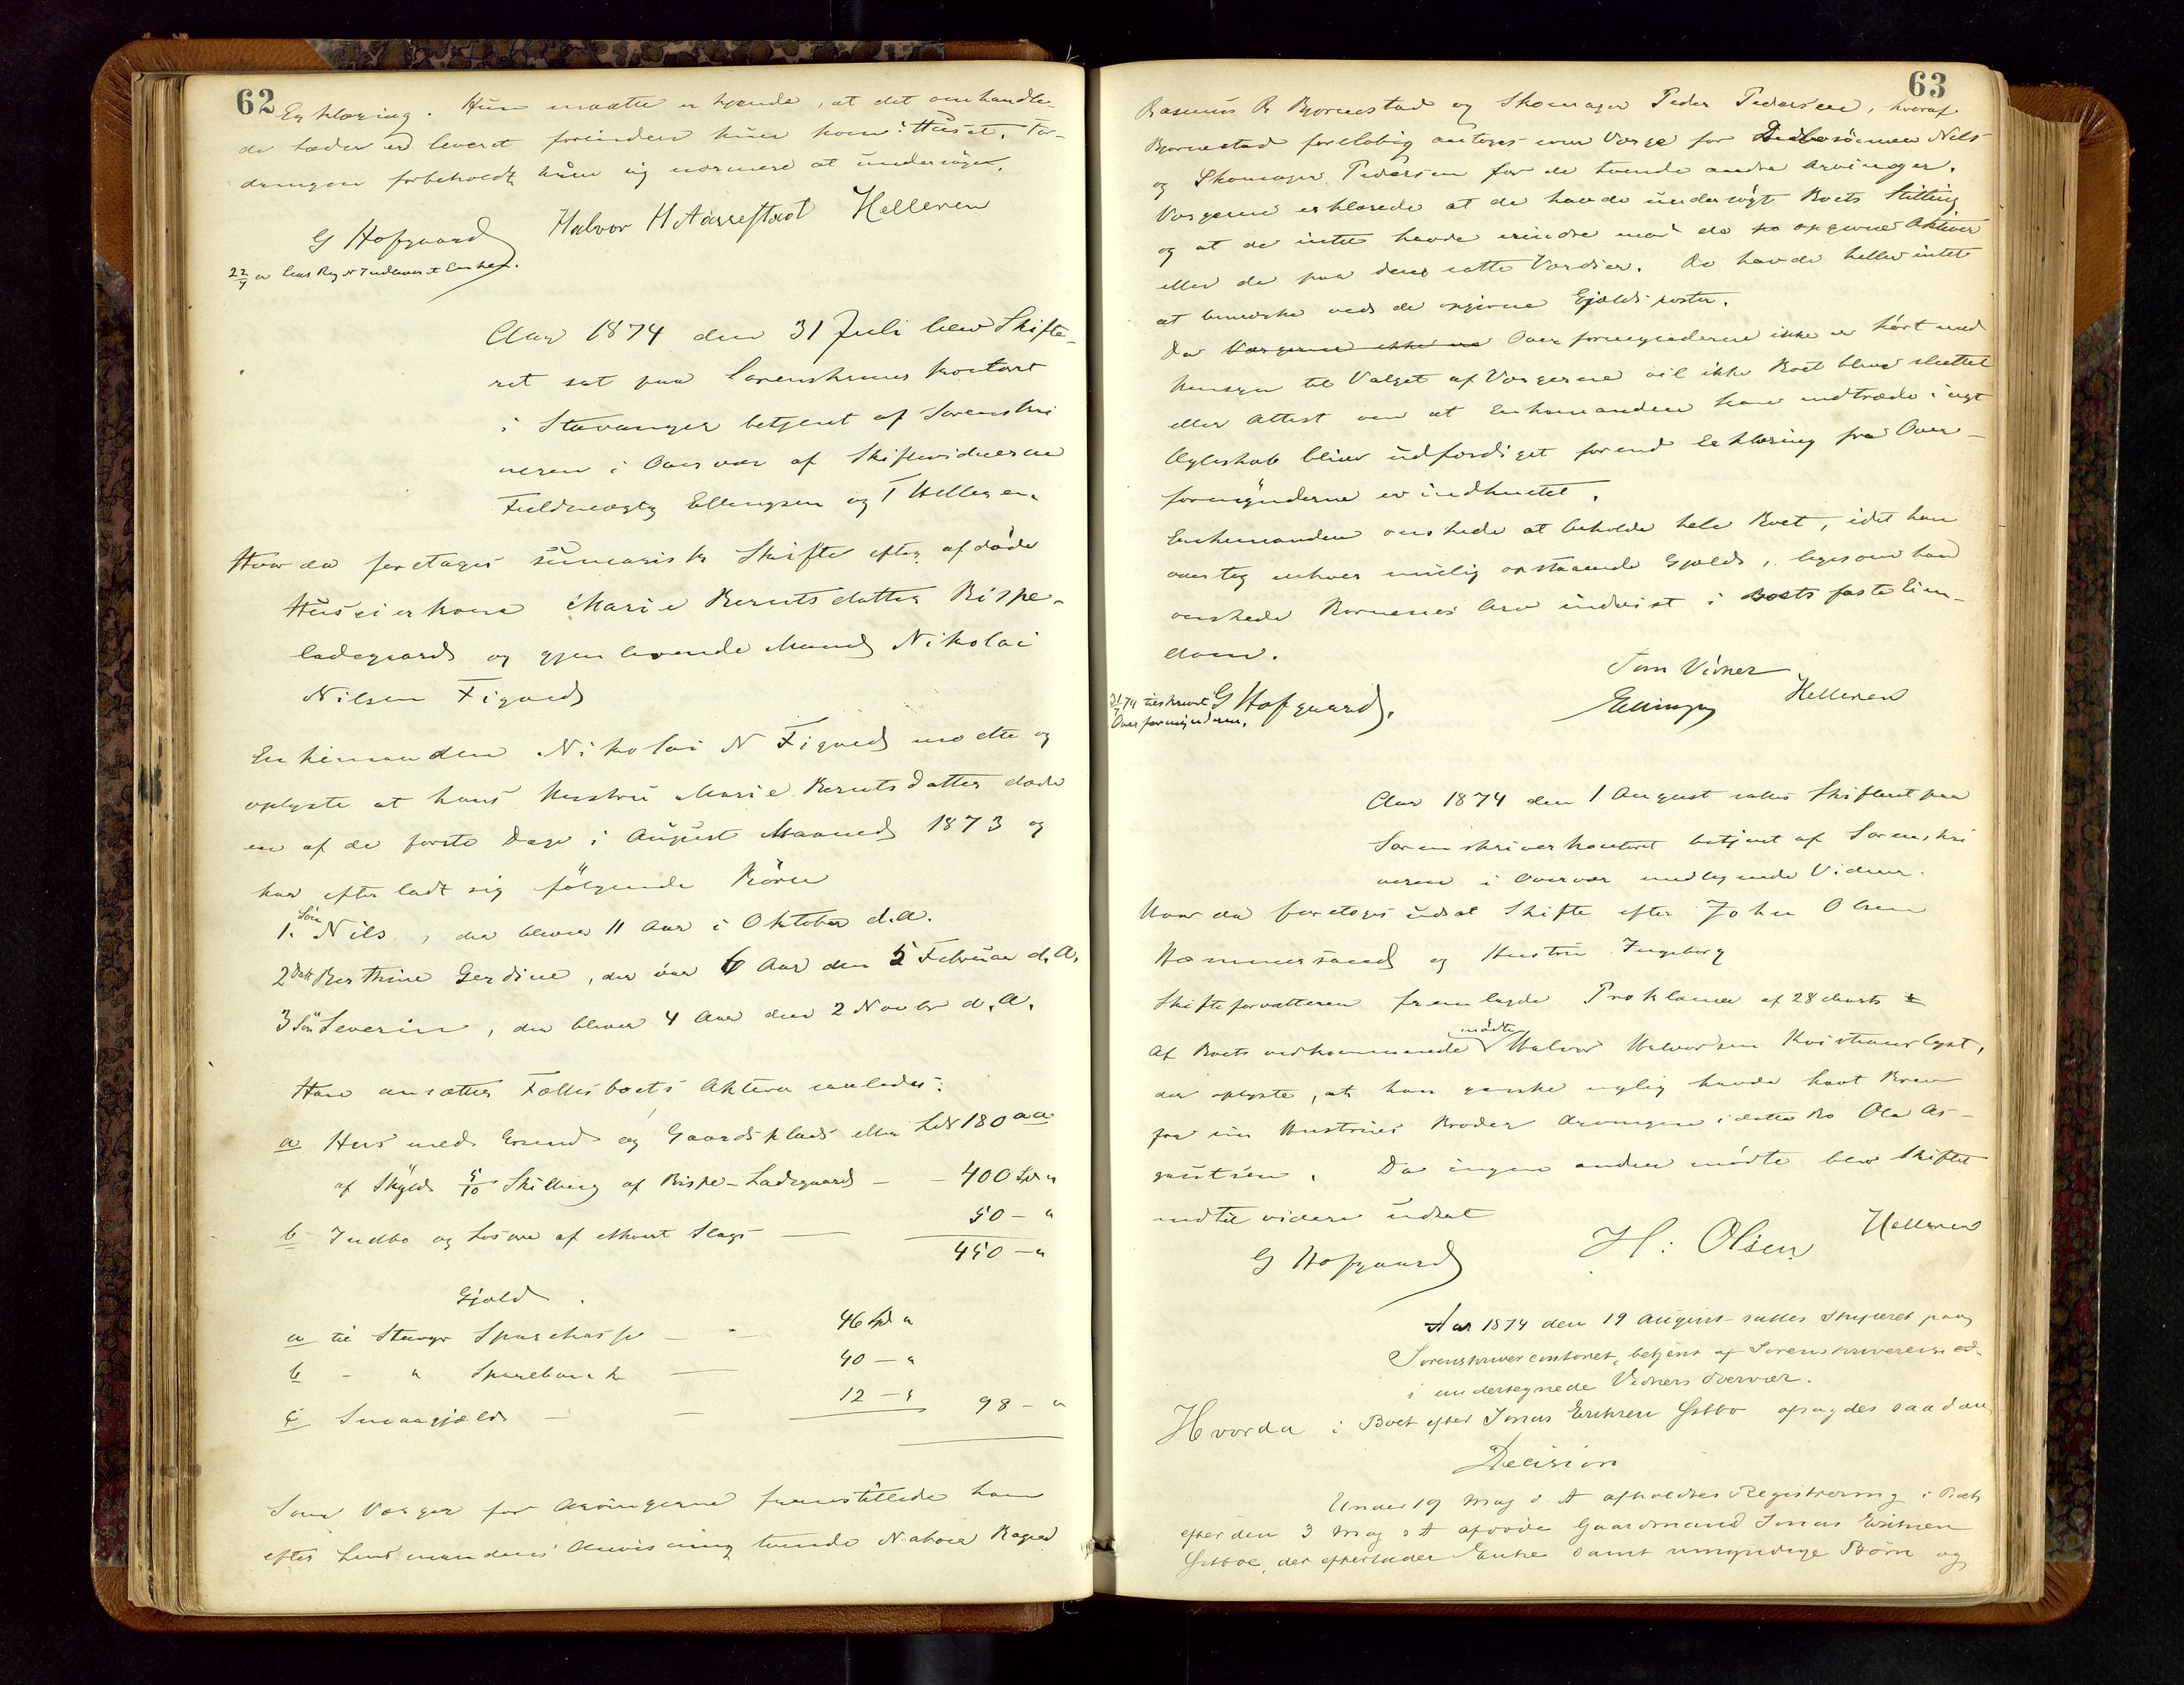 62
Erklæring. Hun maatte erkjende, at det omhandle-
de Læder er leveret forinden hun kom i Huset. For-
dringen forbeholdt hun sig nærmere at undersöge.
G Hofgaard Halvor H Aarrestad Helleren
Aar 1874 den 31 Juli blev Skifte-
ret sat paa Sorenskriver kontoret
i Stavanger betjent af Sorenskri
veren i Overvær af Skiftevidnerne
Fuldmægtig Ellingsen og T Helleren.
Hvor da foretages summarisk Skifte efter afdöde
Huseierkone Marie Berntsdatter Bispe-
ladegaard og gjenlevende Mand Nikolai
Nilsen Figved
Enkemanden Nikolai N Figved mødte og
oplyste at hans Hustru Marie Berntsdatter døde
en af de første Dage i August Maaned 1873 og
har efterladt sig følgende Börn
1. Sön Nils, der bliver 11 Aar i Oktober d.A.
2 Datt Berthine Gerdine, der var 6 Aar den 5 Februar d.A.
3 Sön Severin, der bliver 4 Aar den 2 Novbr d.A.
Han ansætter Fællesboets Aktiva saaledes:
a Hus med Grund og Gaardsplads
af Skyld 5/10 Skilling af Bispe-Ladegaard - - 400 Spd "
b Indbo og Løsøre af ethvert Slags — 50 - "
450 - "
Gjæld.
a til Stavgr Sparekasse - - 46 Spd "
b - " Sparebank — 40 - "
c Smaagjæld - - 12 - " 98 - "
Som Værger for Arvingerne fremstillede han
efter Lensmandens Anvisning tvende Naboer
63
Rasmus R Bjornestad og Skomager Peder Pedersen, hvoraf
Bjornestad foreløbig antoges som Værge for Sönnen Nils
og Skomager Pedersen for de tvende andre Arvinger.
Værgerne erklærede at de havde undersögt Boets Stilling
og at de intet havde erindre mod de opgivne Aktiver
eller de paa dem satte Værdier. De havde heller intet
at bemærke ved de opgivne Gjælds poster.
Da Værgerne ikke er Overformynderne ikke er hørt med
Hensyn til Valget af Værgerne vil ikke Boet blive sluttet
eller Attest om at Enkemanden kan indtræde i nyt
Ægteskab bliver udfærdiget forend Erklæring fra Over-
formynderne er indhentet.
Enkemanden onskede at beholde hele Boet, idet han
overtog enhver mulig opstaaende Gjæld, ligesom han
onskede Børnenes Arv indvist i Boets faste Eien-
dom.
Som Vidner
31/7 74 tilskrevet G Hofgaard. Ellingsen Helleren
Overformynderne.
Aar 1874 den 1 August sattes Skifteret paa
Sorenskriverkontoret betjent af Sorenskri
veren i Overvær undtegnede Vidner.
Hvor da foretoges udsat Skifte efter John Olsen
Hommersand og Hustru Ingeborg
Skifteforvalteren fremlagde Proklama af 28 Marts
Af Boets vedkommende mødte Halvor Halvorsen Kristianslyst,
der oplyste, at han ganske nylig havde havt Brev
fra sin Hustrues Broder Arvingen i dette Bo Ola As-
gautsen. Da ingen andre mødte blev Skiftet
indtil videre udsat
G Hofgaard H: Olsen Helleren
Aar 1874 den 19 August sattes Skifteret paa
Sorenskrivercontoret, betjent af Sorenskriveren
i undertegnede Vidners Overvær.
Hvorda i Boet efter Jonas Eriksen Østbø afsagdes saadan
Decision
Under 19 Maj d A afholdtes Registrering i Boet
efter den 3 Maj d A afdøde Gaardmand Jonas Eriksen
Østboe, der efterlader Enke samt umyndige Børn og